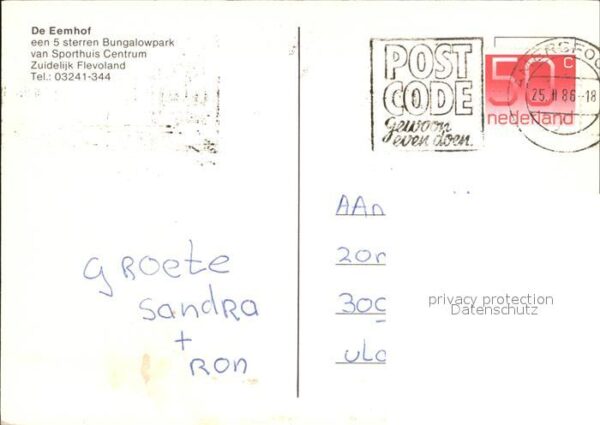 De Eemhof
een 5 sterren Bungalowpark
van Sporthuis Centrum
Zuidelijk Flevoland
Tel.: 03241-344
POST
CODE
gewoon
even doen.
50 c
nederland
25.II 86-18
GROETE
SANDRA
+
RON
AAn
privacy protection
Datenschutz